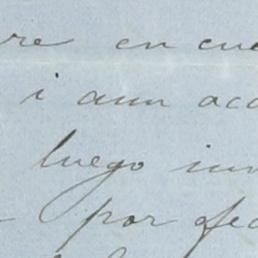 re en cu
i aun aco
luego in
por fec